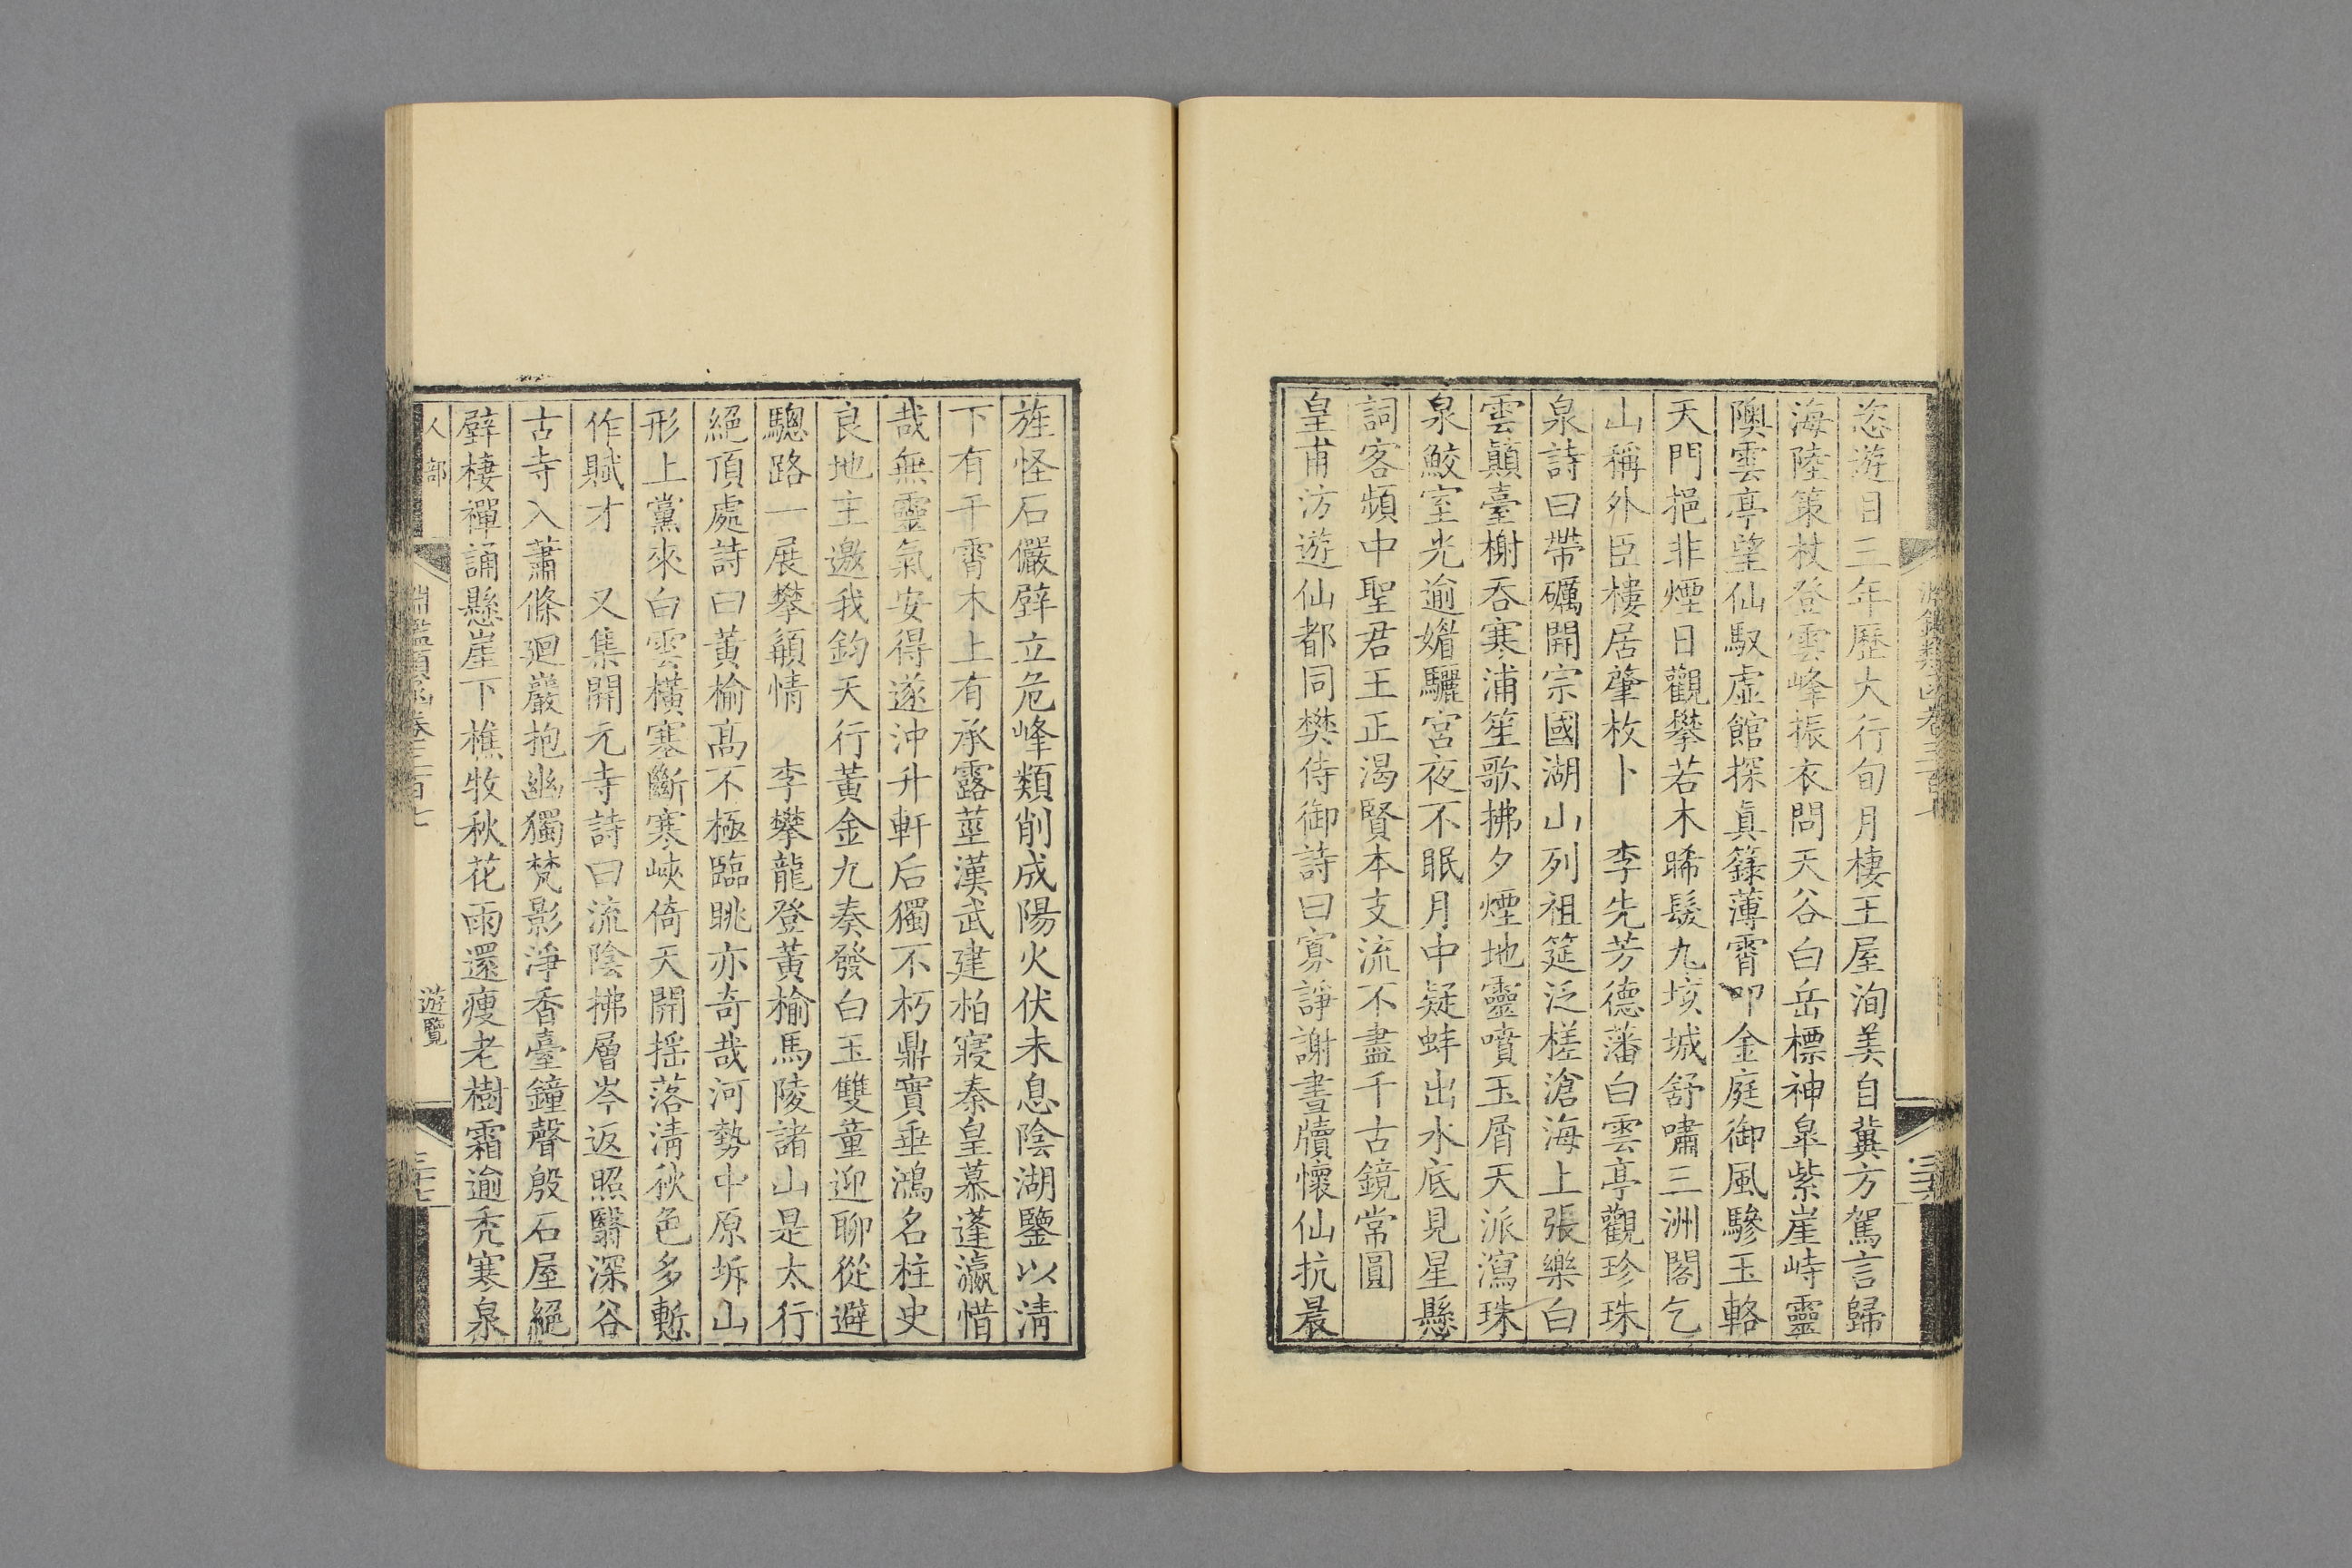 恣遊目三年歷大行旬月棲王屋洵美自冀方駕言歸
海陸策杖登雲峰振衣問天谷白岳標神皐紫崖峙靈
隩雲亭望仙馭虛館探眞籙薄霄叩金庭御風驂玉輅
天門挹非煙日觀攀若木晞髮九垓城舒嘯三洲閣乞
山稱外臣棲居肇枚卜　李先芳德藩白雲亭觀珍珠
泉詩曰帶礪開宗國湖山列祖筵泛槎滄海上張樂白
雲顛臺榭吞寒浦笙歌拂夕煙地靈噴玉屑天派瀉珠
泉鮫室光逾媚驪宮夜不眠月中疑蚌出水底見星懸
詞客頻中聖君王正渴賢本支流不盡千古鏡常圓
皇甫汸遊仙都同樊侍御詩曰寡諍謝書牘懷仙抗晨
旌怪石儼辟立危峰類削成陽火伏未息陰湖鑒以淸
下有干霄木上有承露莖漢武建柏寢秦皇慕蓬瀛惜
哉無靈氣安得遂沖升軒后獨不朽鼎實垂鴻名柱史
良地主邀我鈞天行黃金九奏發白玉雙童迎聊從避
驄路一展攀顧情　李攀龍登黃榆馬陵諸山是太行
絕頂處詩曰黃榆高不極臨眺亦奇哉河勢中原坼山
形上黨來白雲橫寒斷寒峽倚天開搖落淸秋色多慙
作賦才　又集開元寺詩曰流陰拂層岑返照翳深谷
古寺入蕭條廻巖抱幽獨梵影淨香臺鐘聲殷石屋絕
壁棲禪誦懸崖下樵牧秋花雨還瘦老樹霜逾禿寒泉
人部
淵鑑類函卷三百七
遊覽
三十七